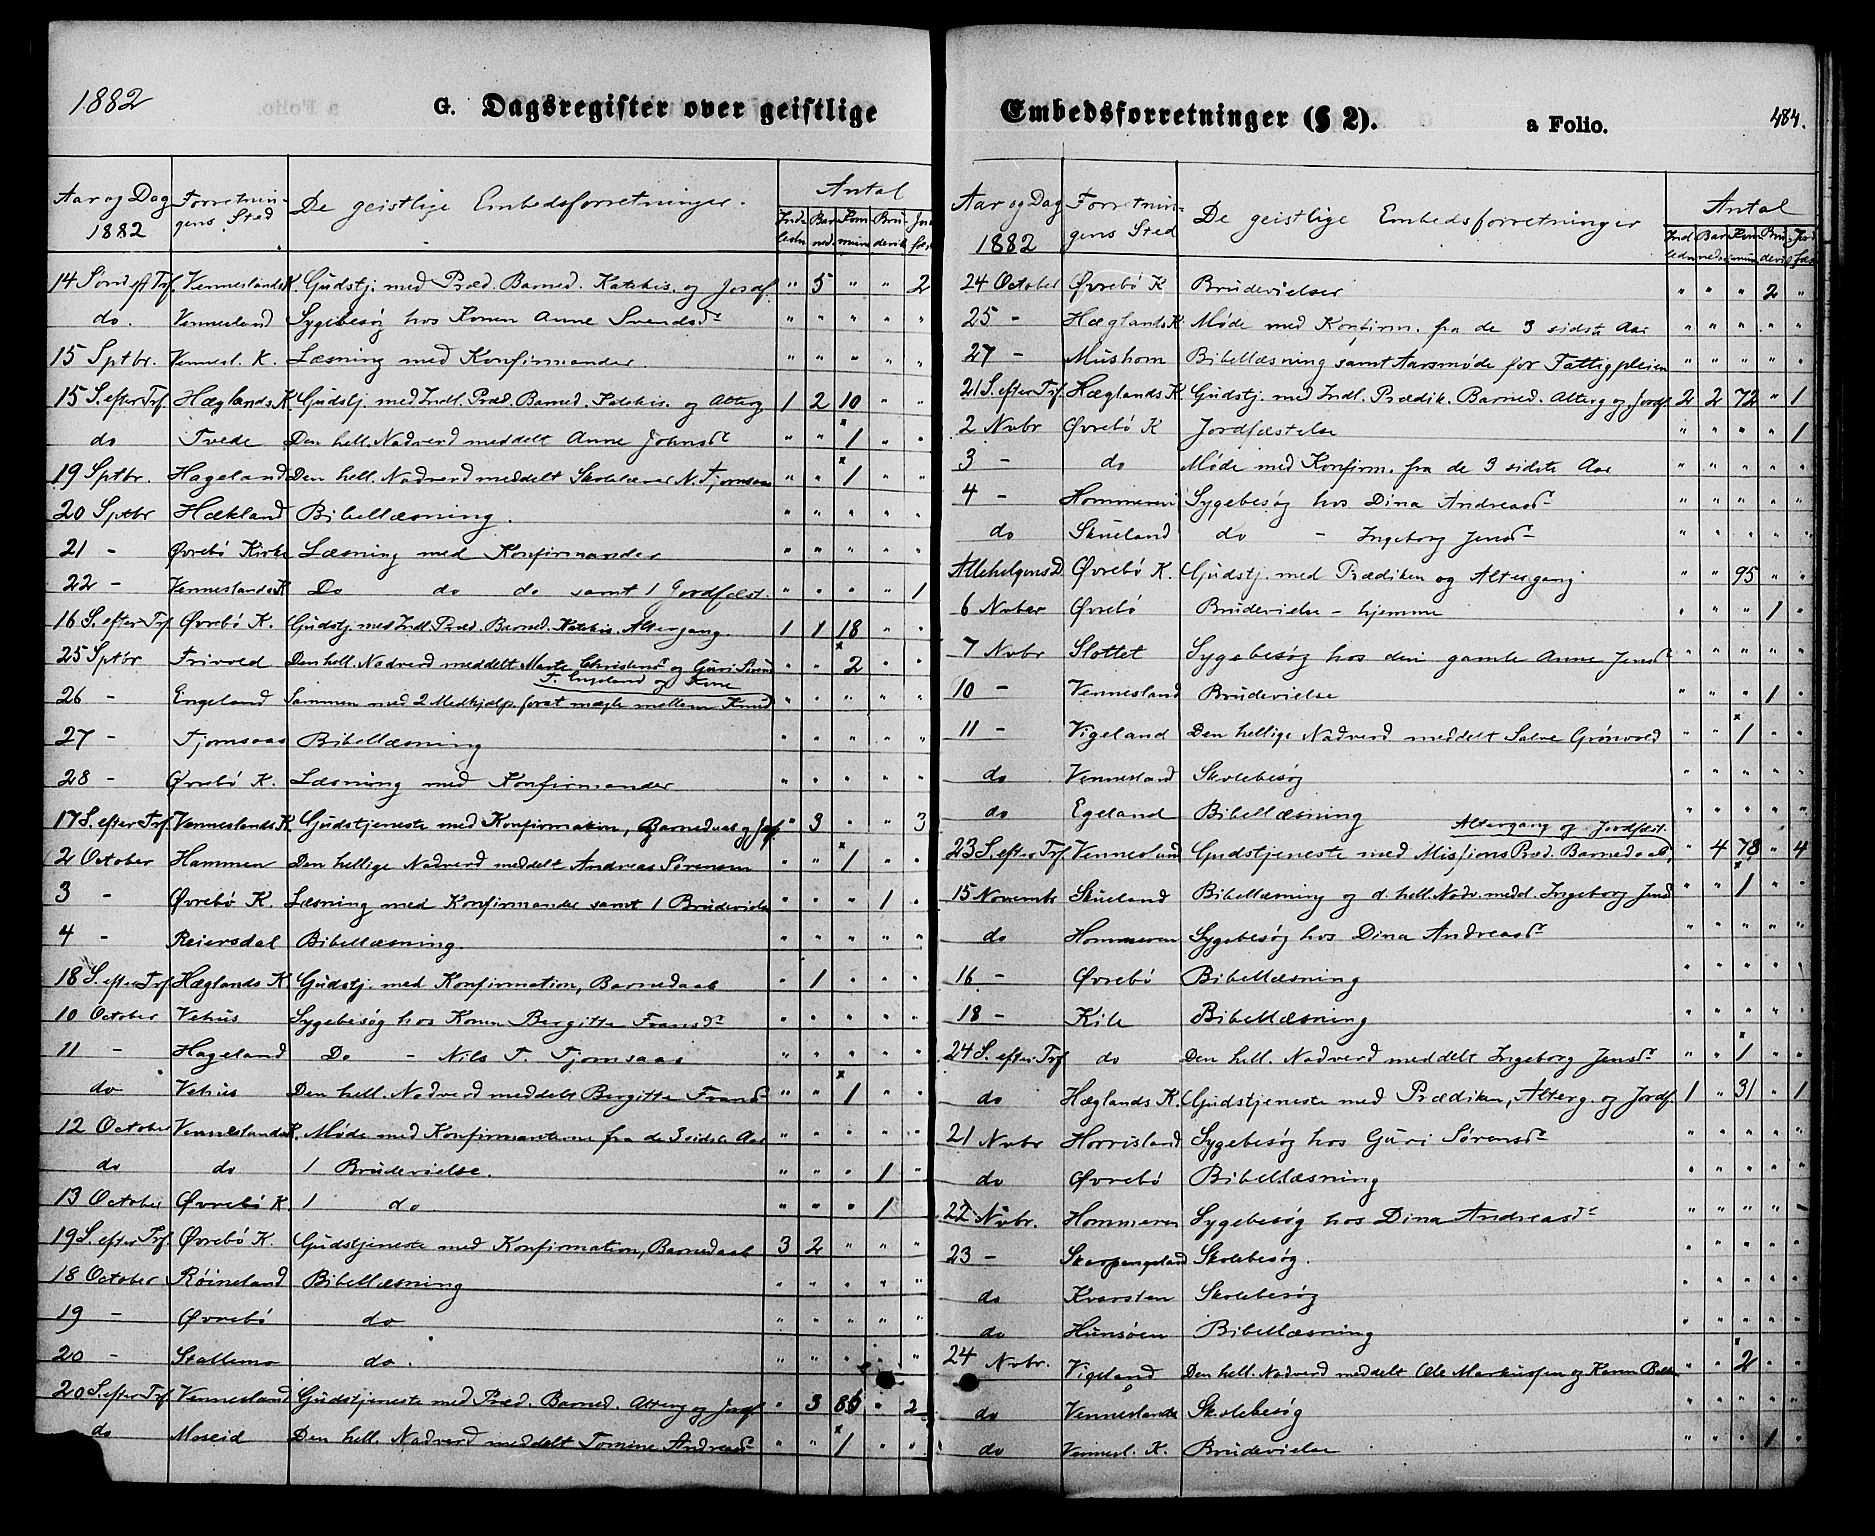 1882
G. Dagsregister over geistlige
Aar og Dag 1882 Forretningens Sted De geistlige Embedsforretninger. Antal
14 Sönd. eft Trf. Venneslands K. Gudstj. med Præd. Barned. Katekis. og Jordf. " 5 " " 2
do. Vennesland Sygebesøg hos Konen Anne Svendsdr " " " " "
15 Sptbr. Vennesl. K. Læsning med Konfirmander. " " " " "
15 S. efter Trf. Hæglands K. Gudstj. med Indl. Præd. Barned. Katekis. og Alterg 1 2 10 " "
do Tvede Den hell. Nadverd meddelt Anne Johnsdr " " x1 " "
19 Sptbr. Hageland Den hell. Nadverd meddelt Skolelærer N. Tjomsaas " " x1 " "
20 Sptbr Hækland Bibellæsning. " " " " "
21 - Øvrebö Kirke Læsning med Konfirmander " " " " "
22 - Venneslands K Do do do samt 1 Jordfæst. " " " " 1
16 S. efter Trf. Øvrebö K. Gudstj. med Indl. Præd. Barned. Katekis. Altergang. 1 1 18 " "
25 Sptbr Frivold Den hell. Nadverd meddelt Marte Christensdr og Guri " " x2 " "
T. Engeland og Kone
26 - Engeland Sammen med 2 Medhjælp. forat mægle mellem Knud " " " " "
27 - Tjomsaas Bibellæsning " " " " "
28 - Øvrebö K. Læsning med Konfirmander " " " " "
17 S. efter Trf. Venneslands K. Gudstjeneste med Konfirmation, Barnedaab og Jordf " 3 " " 3
2 October Hammen Den hellige Nadverd meddelt Andreas Sørensen " " x1 " "
3 - Øvrebö K. Læsning med Konfirmander samt 1 Brudevielse " " " 1 "
4 - Reiersdal Bibellæsning. " " " " "
18 S. efter Trf. Hæglands K. Gudstj. med Konfirmation, Barnedaab " 1 " " "
10 October Vehus Sygebesøg hos Konen Bergitte Fransdr " " " " "
11 - Hageland Do - Nils T. Tjomsaas " " " " "
do Vehus Den hell. Nadverd meddelt Bergitte Fransd " " x1 " "
12 October Venneslands K. Møde med Konfirmanterne fra de 3 sidste Aar " " " " "
do do 1 Brudevielse. " " " 1 "
13 October Øvrebö K. 1 do " " " 1 "
19 S. efter Trf. Øvrebö K. Gudstjeneste med Konfirmation, Barnedaab 3 2 " " "
18 October Röineland Bibellæsning " " " " "
19 - Øvrebö do " " " " "
20 - Stallemo do. " " " " "
20 S. efter Trf. Vennesland Gudstjeneste med Præd. Barned. Alterg og Jordf " 3 " 2
do Moseid Den hell. Nadverd meddelt Tomine Andreasdr " " x1 " "
Embedsforretninger (§ 2).
a Folio.
484.
Aar og Dag 1882 Forretningens Sted De geistlige Embedsforretninger Antal
24 October Øvrebö K Brudevielser " " " 2 "
25 - Hæglands K. Møde med Konfirm. fra de 3 sidste Aar " " " " "
27 - Mushom Bibellæsning samt Aarsmøde for Fattigpleien " " " " "
21 S. efter Trf. Hæglands K. Gudstj. med Indl. Prædik. Barned. Alterg og Jordf 2 2 72 " 1
2 Nvbr Øvrebö K Jordfæstelse " " " " 1
3 - do Møde med Konfirm. fra de 3 sidste Aar " " " " "
4 - Hommeren Sygebesøg hos Dina Andreasdr " " " " "
do Skueland do - Ingeborg Jensdr " " " " "
Allehelgensd Øvrebö K. Gudstj. med Prædiken og Altergang " " 95 " "
6 Nvber Øvrebö Brudevielse - hjemme " " " 1 "
7 Nvbr Slottet Sygebesøg hos den gamle Anne Jensdr " " " " "
10 - Vennesland Brudevielse " " " 1 "
11 - Vigeland Den hellige Nadverd meddelt Salve Grönvold " " x1 " "
do Vennesland Skolebesøg " " " " "
do Egeland Bibellæsning " " " " "
Altergang og Jordfæst.
23 S. efter Trf. Vennesland Gudstjeneste med Missions Præd. Barnedaab, " 4 78 " 4
15 Novembr Skueland Bibellæsning og d. hell. Nadv. medd. Ingeborg Jensd " " x1 " "
do Hommeren Sygebesøg hos Dina Andreasdr " " " " "
16 - Øvrebö Bibellæsning " " " " "
18 - Kile Bibellæsning " " " " "
24 S. efter Trf do Den hell. Nadverd meddelt Ingeborg Jensdr " " x1 " "
do Hæglands K. Gudstjeneste med Prædiken, Alterg. og Jordf. 1 " 31 " 1
21 Nvbr Horrisland Sygebesøg hos Guri Sörensdr " " " " "
do Øvrebö Bibellæsning " " " " "
22 Nvbr. Hommeren Sygebesøg hos Dina Andreasdr " " " " "
23 - Skarpengeland Skolebesøg. " " " " "
do Kvarsten Skolebesøg " " " " "
do Hunsöen Bibellæsning " " " " "
24 Nvbr. Vigeland Den hell. Nadverd meddelt Ole Markussen og Karen " " x2 " "
do Vennesland Skolebesøg " " " " "
do Vennesl. K. Brudevielse " " " 1 "